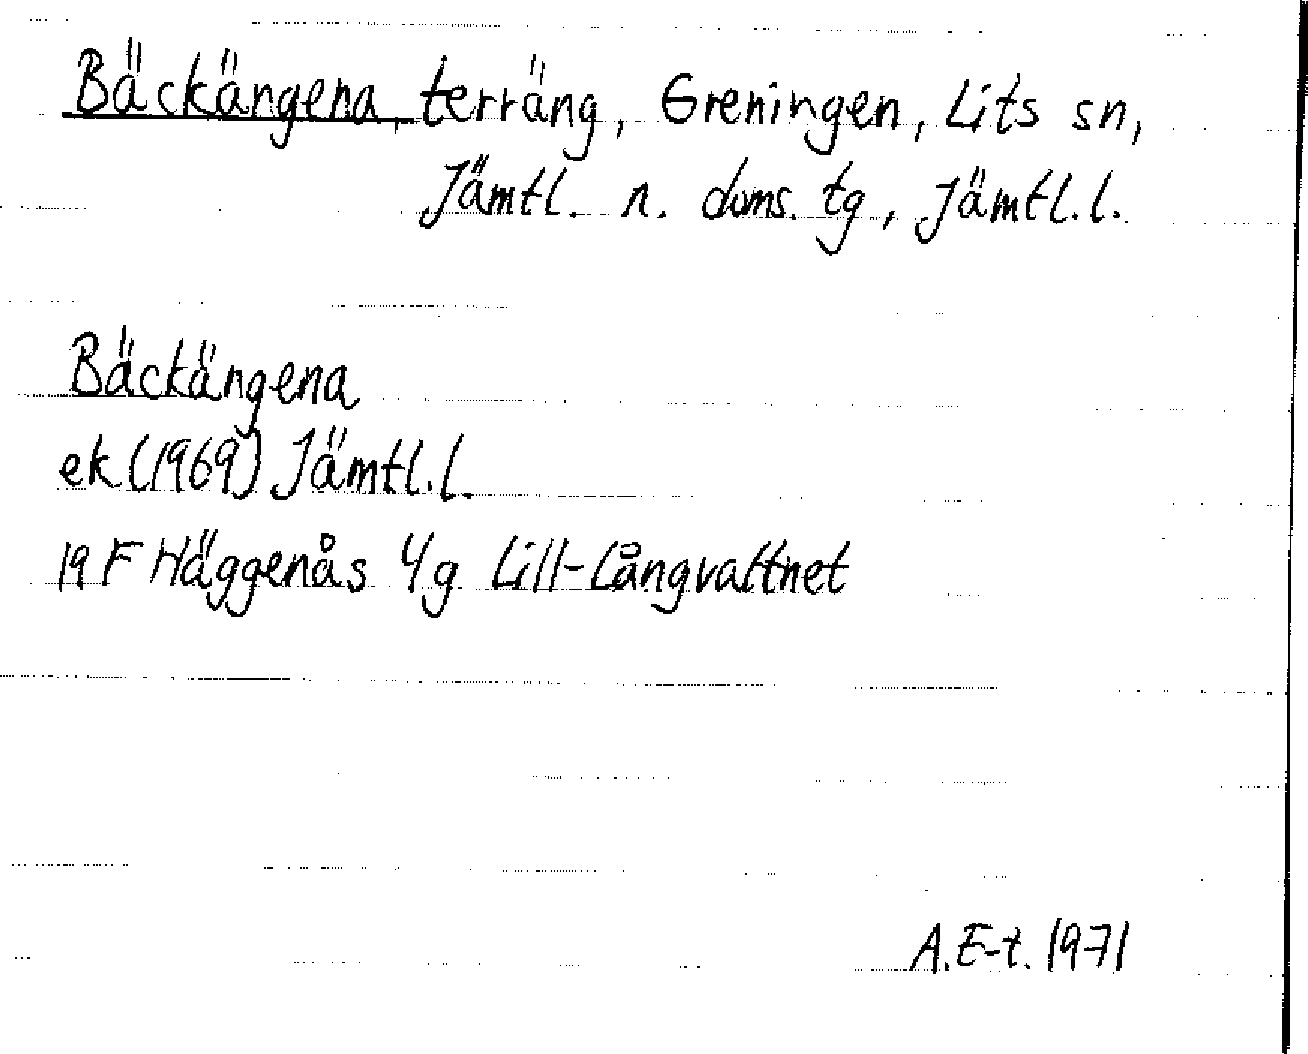 Bäckängena, terräng, Greningen, Lits sn,
Jämtl. n. doms. tg, Jämtl. l.
Bäckängena
ek (1969) Jämtl. l.
19 F Häggenås 4g Lill-Långvattnet
A. E-t. 1971